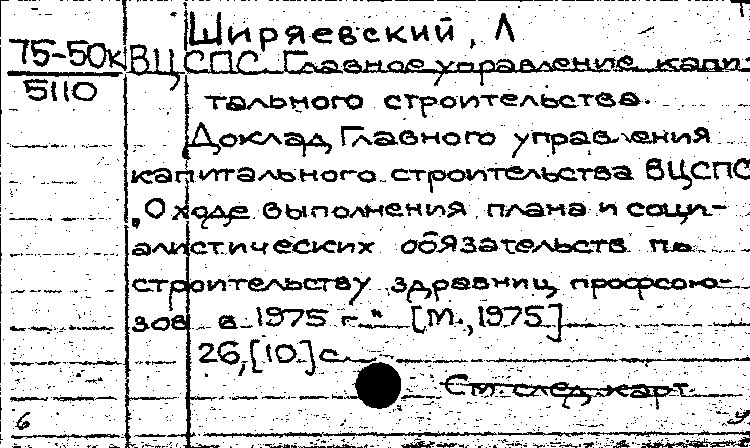 Ширяевский, Л
75-50к ВЦСПС. Главное управление капи-
5110 тального строительства.
Доклад Главного управления
капитального строительства ВЦСПС
„О ходе выполнения плана и соци-
алистических обязательств по
строительству здравниц профсою-
зов в 1975 г." [М., 1975]
26,[10.]с.
См. след. карт.
6